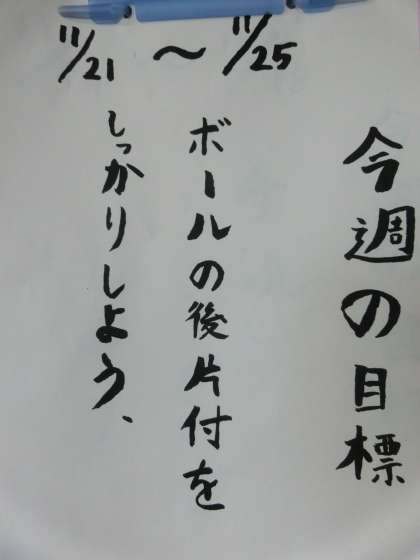 11/21 〜 11/25
今週の目標
ボールの後片付を
しっかりしよう、